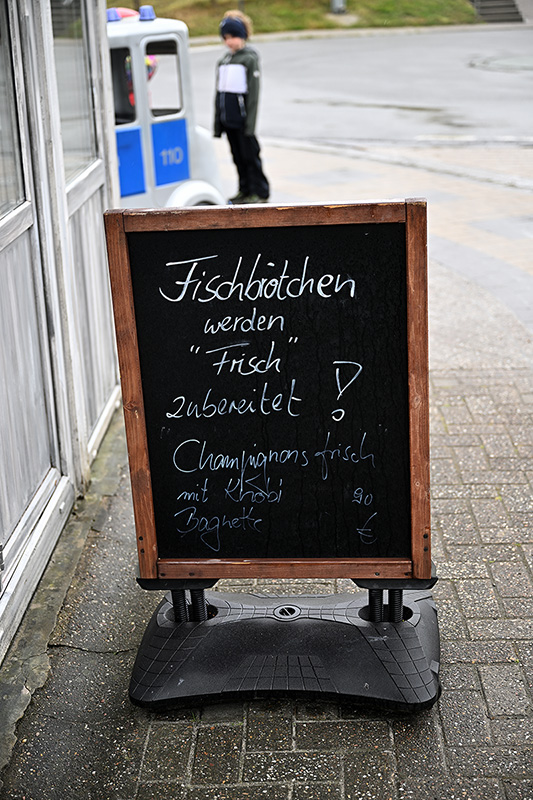 110
Fischbrötchen
werden
"Frisch"
zubereitet !
"Champignons frisch"
mit Knobi
Bagnette
€